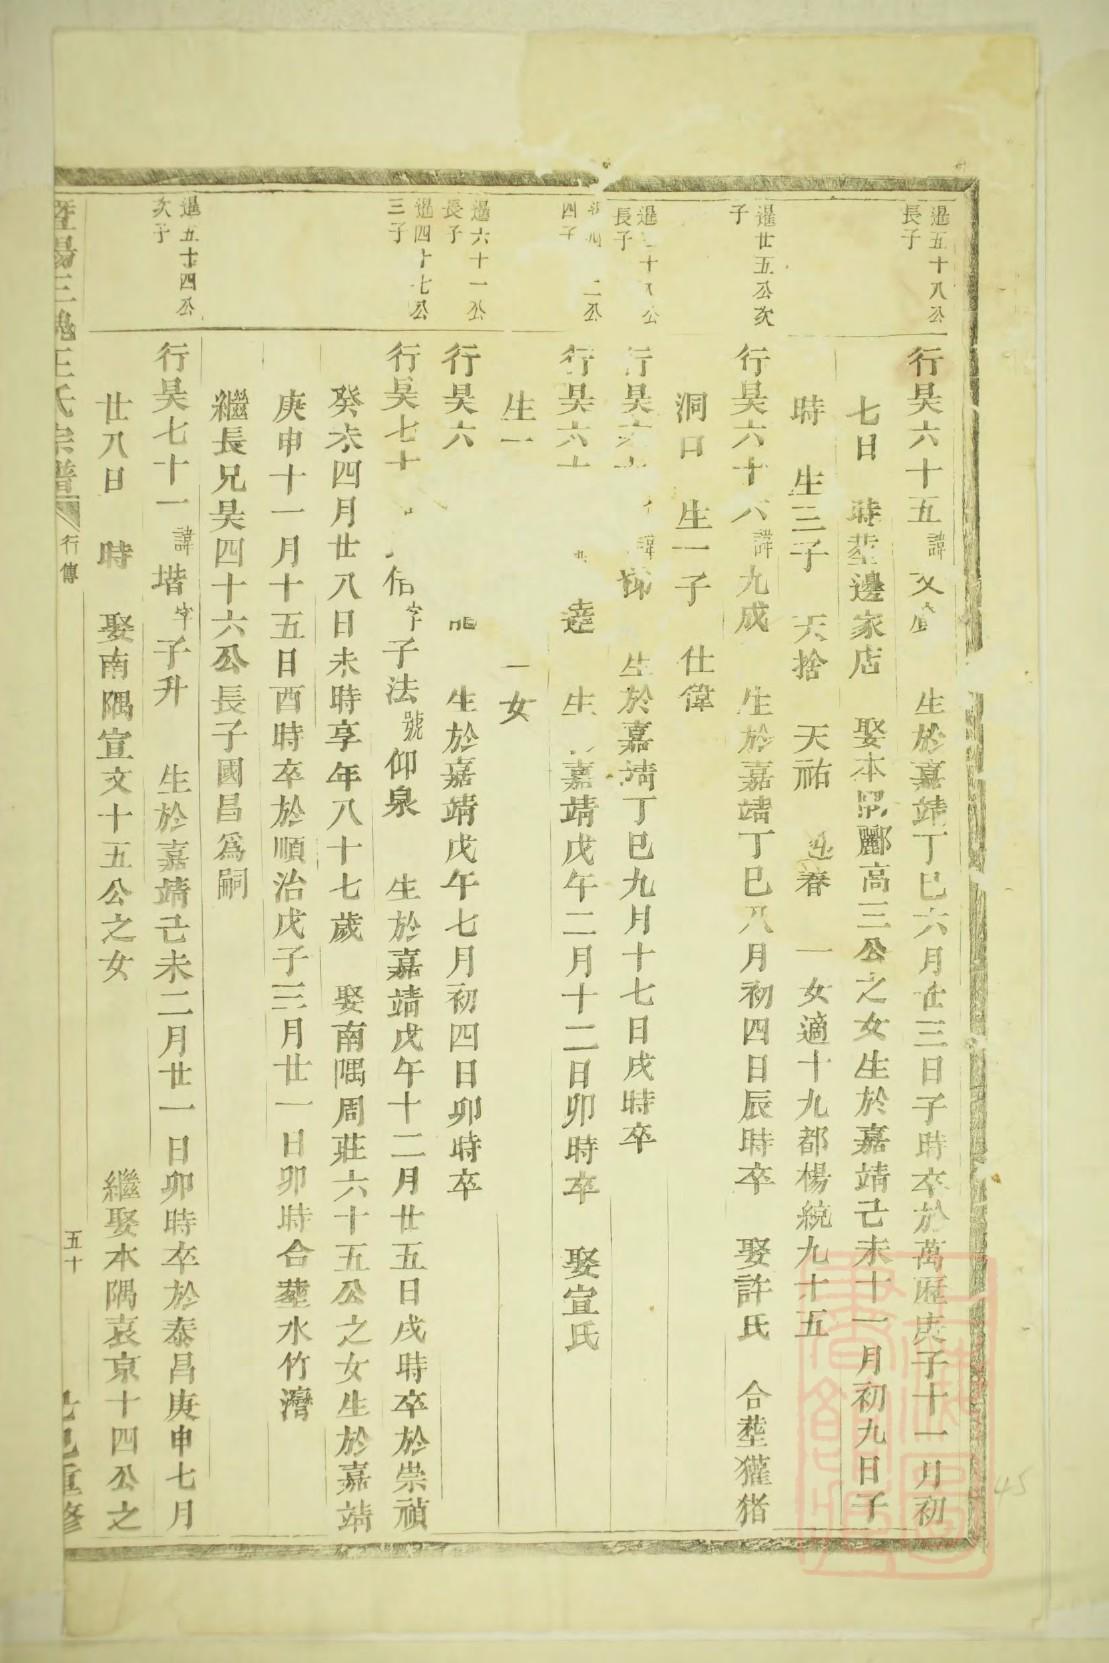 暹五十八公
長子
行昊六十五諱文 生於嘉靖丁巳六月廿三日子時卒於萬歷庚子十一月初
七日 時塟邊家店 娶本 酈高三公之女生於嘉靖己未十一月初九日子
時 生三子 天捨 天祐 春 一女適十九都楊統九十五
暹廿五公次
子
行昊六十六諱九成 生於嘉靖丁巳八月初四日辰時卒 娶許氏 合塟獾猪
洞口 生一子 仕偉
長子
行昊六 諱 生於嘉靖丁巳九月十七日戌時卒
二公
四子
行昊六十 逵 生 嘉靖戊午二月十二日卯時卒 娶宣氏
生一 一女
暹六十一公
長子
行昊六 生於嘉靖戊午七月初四日卯時卒
暹四十七公
三子
行昊七十 信字子法號仰泉 生於嘉靖戊午十二月廿五日戌時卒於崇禎
癸未四月廿八日未時享年八十七歲 娶南隅周莊六十五公之女生於嘉靖
庚申十一月十五日酉時卒於順治戊子三月廿一日卯時合塟水竹灣
繼長兄昊四十六公長子國昌爲嗣
暹五十四公
次子
行昊七十一諱堦字子升 生於嘉靖己未二月廿一日卯時卒於泰昌庚申七月
廿八日 時 娶南隅宣文十五公之女 繼娶本隅袁京十四公之
暨陽三槐王氏宗譜 行傳 五十 重修